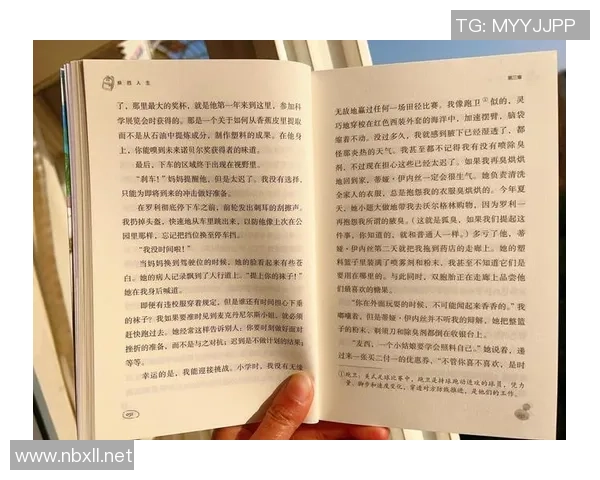 TG: MYYJJPP
麻烦人生
了，那里最大的奖杯，就是他第一年来到这里，参加科
学展览会时获得的。那是一个关于如何从香蕉皮里提取
而不是从石油中提炼成分，制作塑料的成果。在他身
上，你能嗅到未来诺贝尔奖获得者的味道。
最后，下车的区域终于出现在视野里。
“刹车！”妈妈提醒他，但是太迟了。我没有选择，
只能为即将到来的冲击做好准备。
在罗利彻底停下车之前，前轮发出刺耳的刮擦声，
我扔掉头盔，快速地从车里跳出来，以防他像上次在公
园里那样，忘记把挡位换至停车挡。
“我没时间啦！”
当妈妈换到驾驶位的时候，她的脸看起来有些苍
白。她的病人记录飘到了人行道上。“提上你的袜子！”她
在我身后喊道。
即便有连校服穿着规定，但是谁还有时间担心下垂
的袜子？我如果要准时见到麦克丹尼尔斯小姐，就必须
赶快跑过去。她经常这样告诉别人：你要时刻做好面对
挫折的准备，而不是与之对抗；迟到是不做计划的结果；
等等。
幸运的是，我能迎接挑战。小学时，我没有天
第三章
无敌地赢过任何一场田径比赛。我像跑卫①似的，灵
巧地穿梭在红色西装外套的海洋中，加速摆臂，脑袋
缩着不动。没过多久，我就感到腋下已经湿透了，都
怪那炎热的天气。我甚至都不记得我有没有喷除臭
剂，不过现在担心这些已经太迟了。如果我再臭烘烘
地回到家，蒂娅·伊内丝一定会很生气。她负责清洗
全家人的衣服，总是抱怨我的衣服臭烘烘的。今年夏
天，她小题大做地带我去沃尔格林购物，因为罗利一
再抱怨我所谓的腋臭。（这就是孤臭，如果我们提起这
件事，你知道的，就和普通人一样。）多亏了他，蒂
娅·伊内丝第二天就把我拖到药店的走廊上。她的塑
料篮子里装满了喷雾剂和粉末，我甚至不知道它们是
要用在哪里的。与此同时，双胞胎正在走廊上品尝他
们最喜欢的糖果。
“你在外面玩耍的时候，不可能闻起来香香的。”我
嘟囔着，但是蒂娅·伊内丝并不听我的辩解，她把整篮
子的粉末、剃须刀和除臭剂都倒在收银台上。
“麦西，一个小姑娘要学会照料自己。”她说着，递
过来一张买二付一的优惠券。“不管你喜不喜欢，是时
①跑卫：美式足球比赛中，跑卫是持球跑动进攻的球员，凭力
量、脚步和速度变化，穿透对方防线推进，是他们的工作。
www.nbxll.net